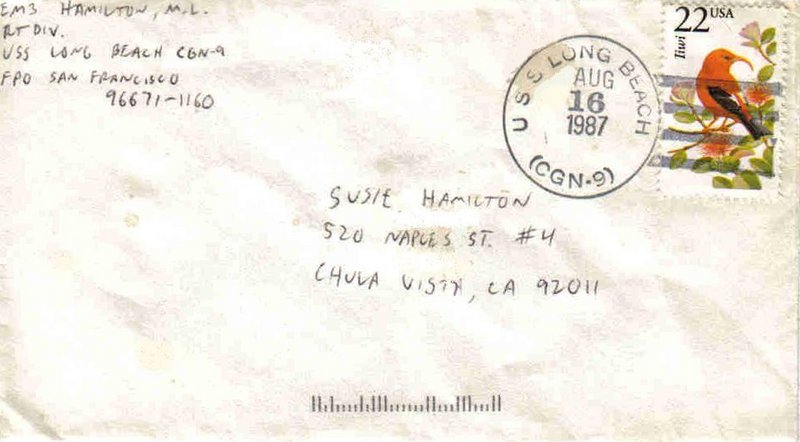 EM3 HAMILTON, M.L.
RT DIV.
USS LONG BEACH CGN-9
FPO SAN FRANCISCO
96671-1160
USS LONG BEACH
AUG
16
1987
(CGN-9)
22 USA
Iiwi
SUSIE HAMILTON
520 NAPLES ST. #4
CHULA VISTA, CA 92011